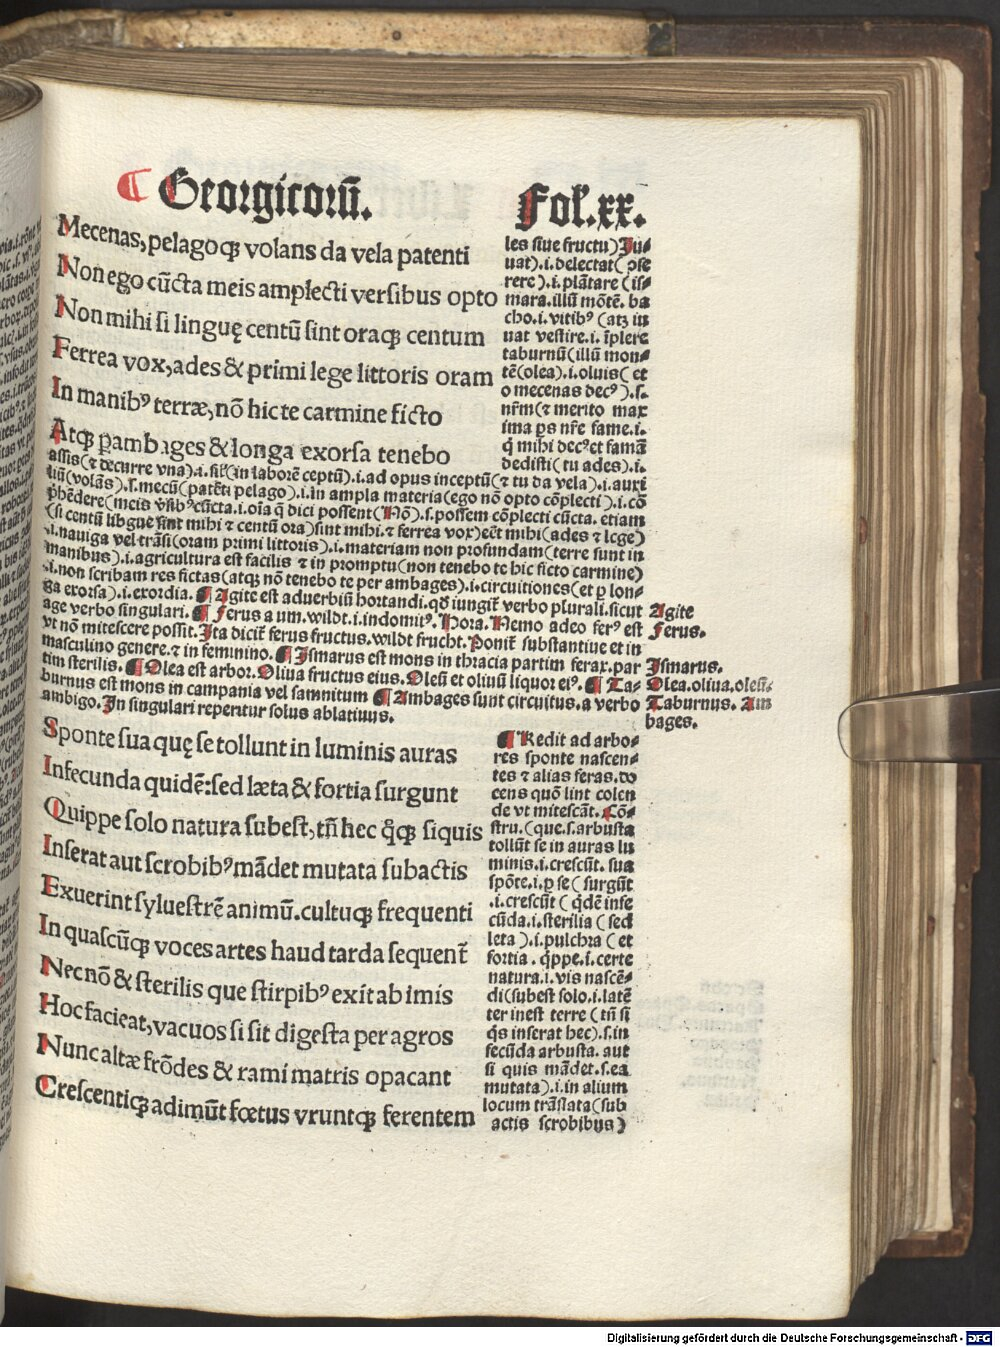 ¶ Georgicorũ. Fol.xx.
Mecenas, pelagoqꝫ volans da vela patenti
Non ego cũcta meis amplecti versibus opto
Non mihi si linguę centũ sint oraqꝫ centum
Ferrea vox, ades & primi lege littoris oram
In manibꝰ terræ, nõ hic te carmine ficto
Atqꝫ ꝑambages & longa exorsa tenebo
les siue fructu) Ju⸗
uat).i.delectat( ↄse
rere).i.plãtare (is⸗
mara.illũ mõtẽ. ba
cho.i.vitibꝰ (atꝫ iu
uat vestire.i. ĩplere
taburnũ(illũ mon⸗
tẽ(olea).i.oliuis( et
o mecenas decꝰ ).s.
nr̃m(⁊ merito max
ima ꝑs nr̃e fame.i.
q̃ mihi decꝰ et famã
dedisti( tu ades).i.
assis(⁊ decurre vna).i. sił(in laborẽ ceptũ).i.ad opus inceptũ(⁊ tu da vela).i.auxi
liũ(volãs).s.mecũ(patẽti pelago).i.in ampla materia(ego nõ opto cõplecti).i.cõ
p̃hẽdere(meis v̓sibꝰ cũcta.i.oĩa q̃ dici possent(Nõ).s.possem cõplecti cũcta. etiam
(si centũ lingue sint mihi ⁊ centũ ora)sint mihi.⁊ ferrea vox)eẽt mihi(ades ⁊ lege)
.i.nauiga vel trãsi(oram primi littoris).i.materiam non profundam(terre sunt in
manibus).i.agricultura est facilis ⁊ in promptu(non tenebo te hic ficto carmine)
.i.non scribam res fictas(atqꝫ nõ tenebo te per ambages).i.circuitiones(et ꝑ lon⸗
ga exorsa).i.exordia. ¶ Agite est aduerbiũ hortandi.qď iungit̃ verbo plurali.sicut
age verbo singulari. ¶ Ferus a um.wildt.i.indomitꝰ. Pora. Nemo adeo ferꝰ est
vt nõ mitescere possit. Ita dicit̃ ferus fructus.wildt frucht. Ponit̃ substantiue et in
masculino genere.⁊ in feminino. ¶ Ismarus est mons in thracia partim ferax.par
tim sterilis. ¶ Olea est arbor. Oliua fructus eius. Oleũ et oliuũ liquor eiꝰ. ¶ Ta⸗
burnus est mons in campania vel samnitum ¶ Ambages sunt circuitus.a verbo
ambigo. In singulari reperitur solus ablatiuus.
Agite
Ferus.
Ismarus.
Olea.oliua.oleũ.
Taburnus. Am
bages.
Sponte sua quę se tollunt in luminis auras
Infecunda quidẽ: sed læta & fortia surgunt
Quippe solo natura subest, tñ hec q̊qꝫ siquis
Inserat aut scrobibꝰ mãdet mutata subactis
Exuerint syluestrẽ animũ. cultuqꝫ frequenti
In quascũqꝫ voces artes haud tarda sequent̃
Nec nõ & sterilis que stirpibꝰ exit ab imis
Hoc facieat, vacuos si sit digesta per agros
Nunc altæ frõdes & rami matris opacant
Crescentiqꝫ adimũt fœtus vruntqꝫ ferentem
¶ Redit ad arbo⸗
res sponte nascen⸗
tes ⁊ alias feras.do
cens quõ sint colen
de vt mitescãt. Cõ⸗
stru.(que.s.arbusta
tollũt se in auras lu
minis.i.crescũt. sua
spõte.i.ꝑ se( surgũt
.i.crescũt ( q̃dẽ infe
cũda.i.sterilia (sed
leta ).i.pulchra ( et
fortia . q̃ppe.i.certe
natura.i.vis nascẽ⸗
di(subest solo.i.latẽ
ter inest terre ( tñ si
q̃s inserat hec).s.in
fecũda arbusta. aut
si quis mãdet.s.ea
mutata).i.in alium
locum trãslata(sub
actis scrobibus)
Digitalisierung gefördert durch die Deutsche Forschungsgemeinschaft - DFG